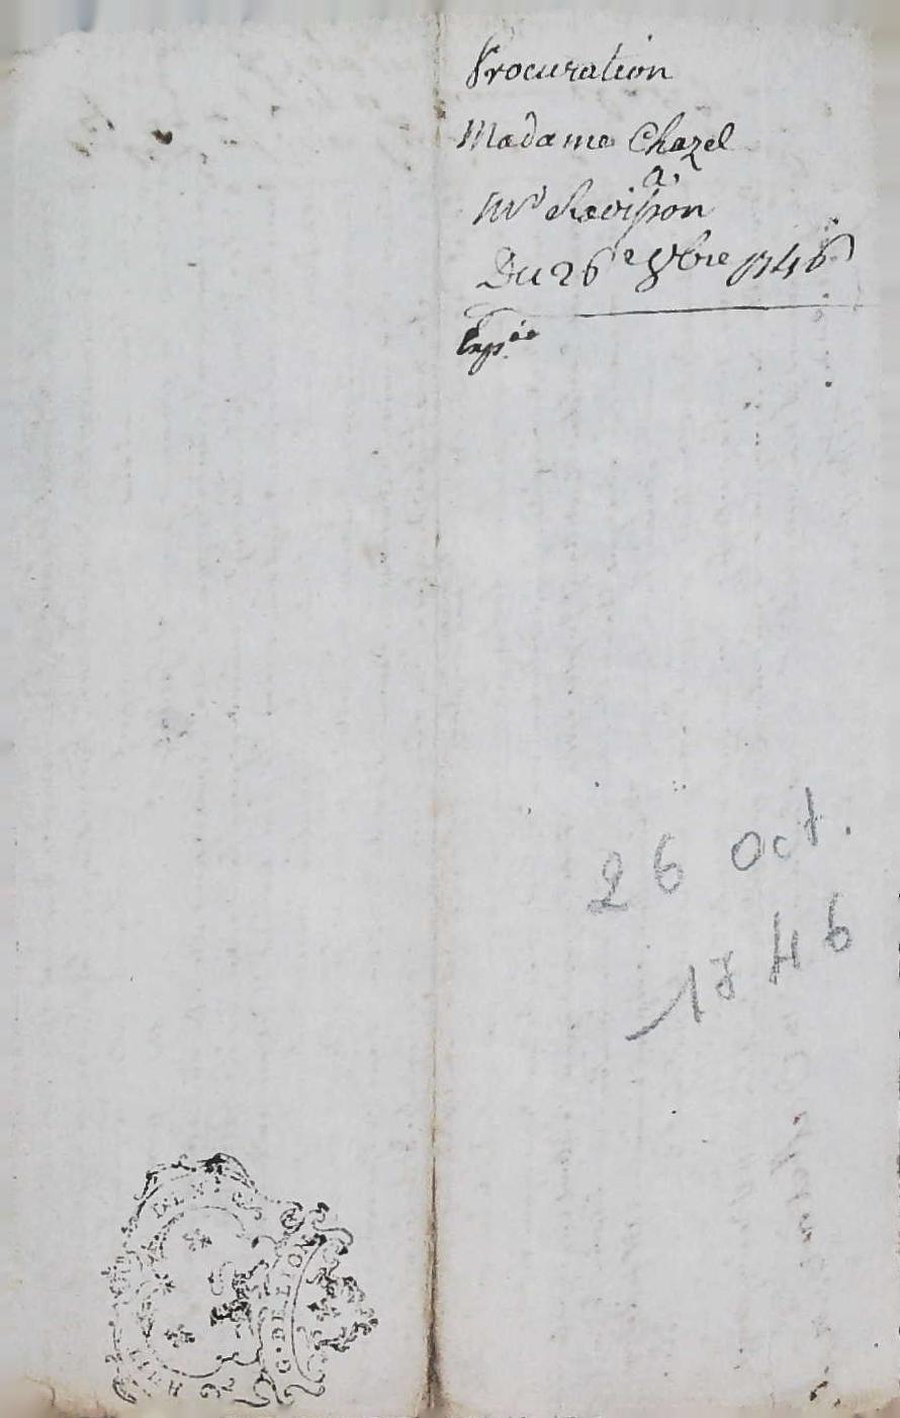 Procuration
Madame Chazel
a
Mr Ravisson
Du 26e 8bre 1746
Exp.ée
26 oct.
1746
G. DE LION